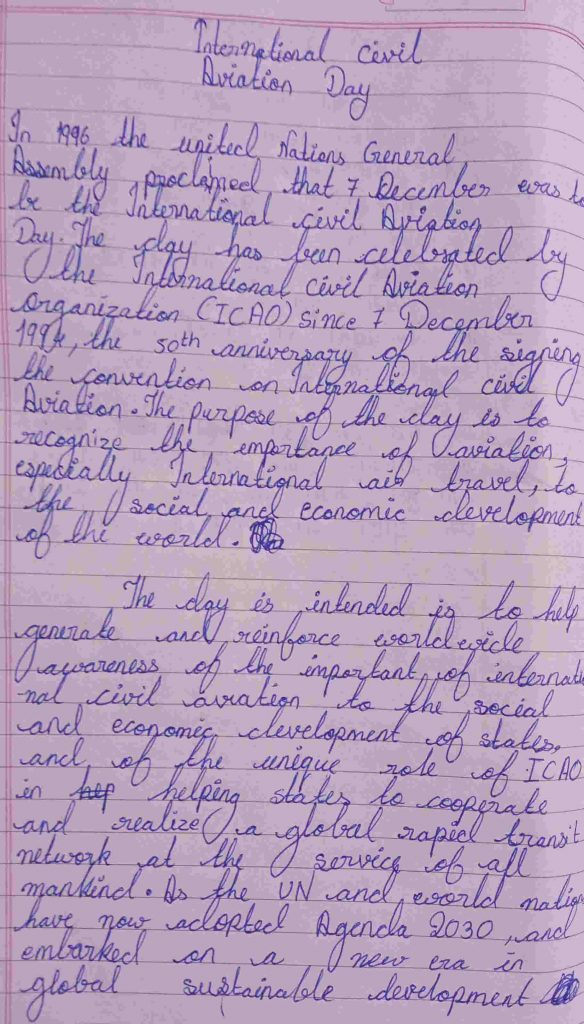 International civil
Aviation Day
In 1996 the united Nations General
Assembly proclaimed that 7 December was to
be the International civil Aviation
Day. The day has been celebrated by
the International civil Aviation
organization (ICAO) since 7 December
1994, the 50th anniversary of the signing
the convention on International civil
Aviation. The purpose of the day is to
recognize the importance of aviation,
especially International air travel, to
the social and economic development
of the world.
The day is intended is to help
generate and reinforce worldwide
awareness of the important of internatio
nal civil aviation to the social
and economic development of states,
and of the unique role of ICAO
in helping states to cooperate
and realize a global rapid transit
network at the service of all
mankind. As the UN and world nation
have now adopted Agenda 2030, and
embarked on a new era in
global sustainable development